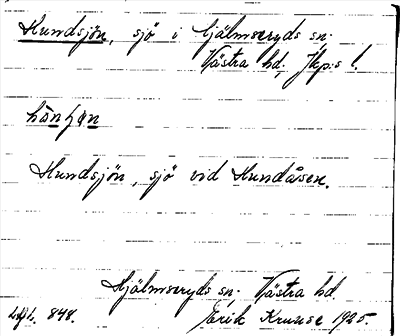 Hundsjön, sjö i Hjälmseryds sn.
Västra hd. Jkp:s l.
Hundsjön, sjö vid Hundåsen.
Hjälmseryds sn. Västra hd.
848. Erik Kruuse 1925.